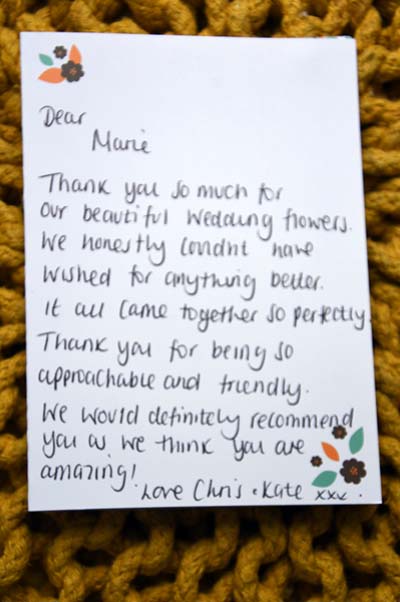 Dear
Marie
Thank you so much for
our beautiful wedding flowers.
We honestly couldnt have
wished for anything better.
it all came together so perfectly.
Thank you for being so
approachable and friendly.
We would definitely recommend
you as we think you are
amazing!
Love Chris + Kate xxx.